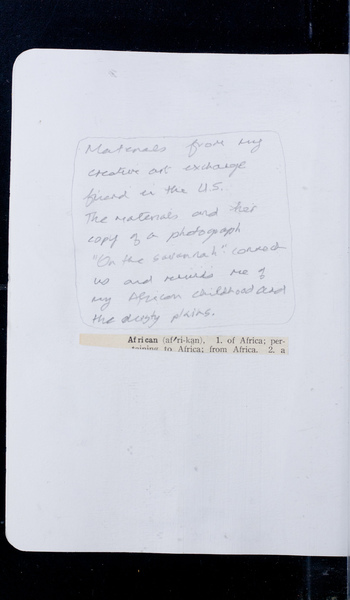 Materials from my
creative art exchange
friend in the U.S.
The materials and her
copy of a photograph
"On the savannah" connect
us and reminds me of
my African childhood and
the dusty plains.
African (af′ri-kan), 1. of Africa; per-
taining to Africa; from Africa. 2. a